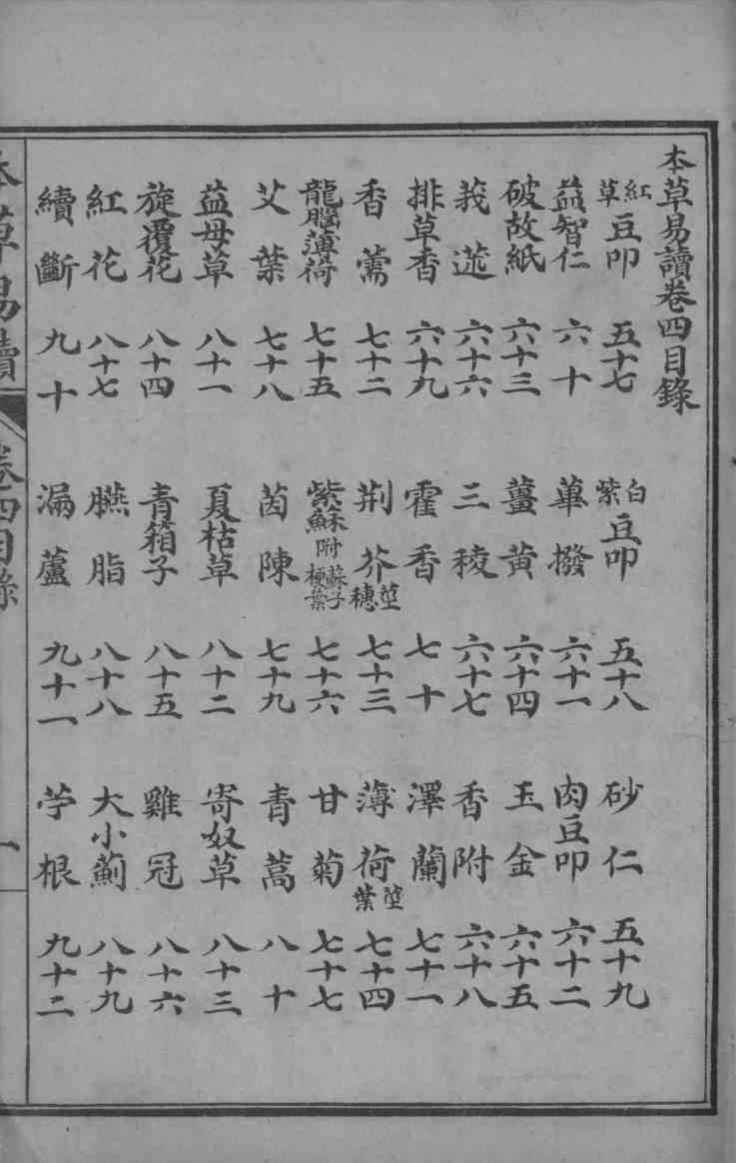 本草易讀卷四目錄
紅草豆叩 五十七 白紫豆叩 五十八 砂仁 五十九
益智仁 六十 蓽撥 六十一 肉豆叩 六十二
破故紙 六十三 薑黃 六十四 玉金 六十五
莪蒁 六十六 三稜 六十七 香附 六十八
排草香 六十九 霍香 七十 澤蘭 七十一
香薷 七十二 荆芥莖穗 七十三 薄荷莖葉 七十四
龍腦薄荷 七十五 紫蘇附蘇子梗葉 七十六 甘菊 七十七
艾葉 七十八 茵陳 七十九 青蒿 八十
益母草 八十一 夏枯草 八十二 寄奴草 八十三
旋覆花 八十四 青箱子 八十五 雞冠 八十六
紅花 八十七 臙脂 八十八 大小薊 八十九
續斷 九十 漏蘆 九十一 苧根 九十二
本草易讀 卷四目錄 一